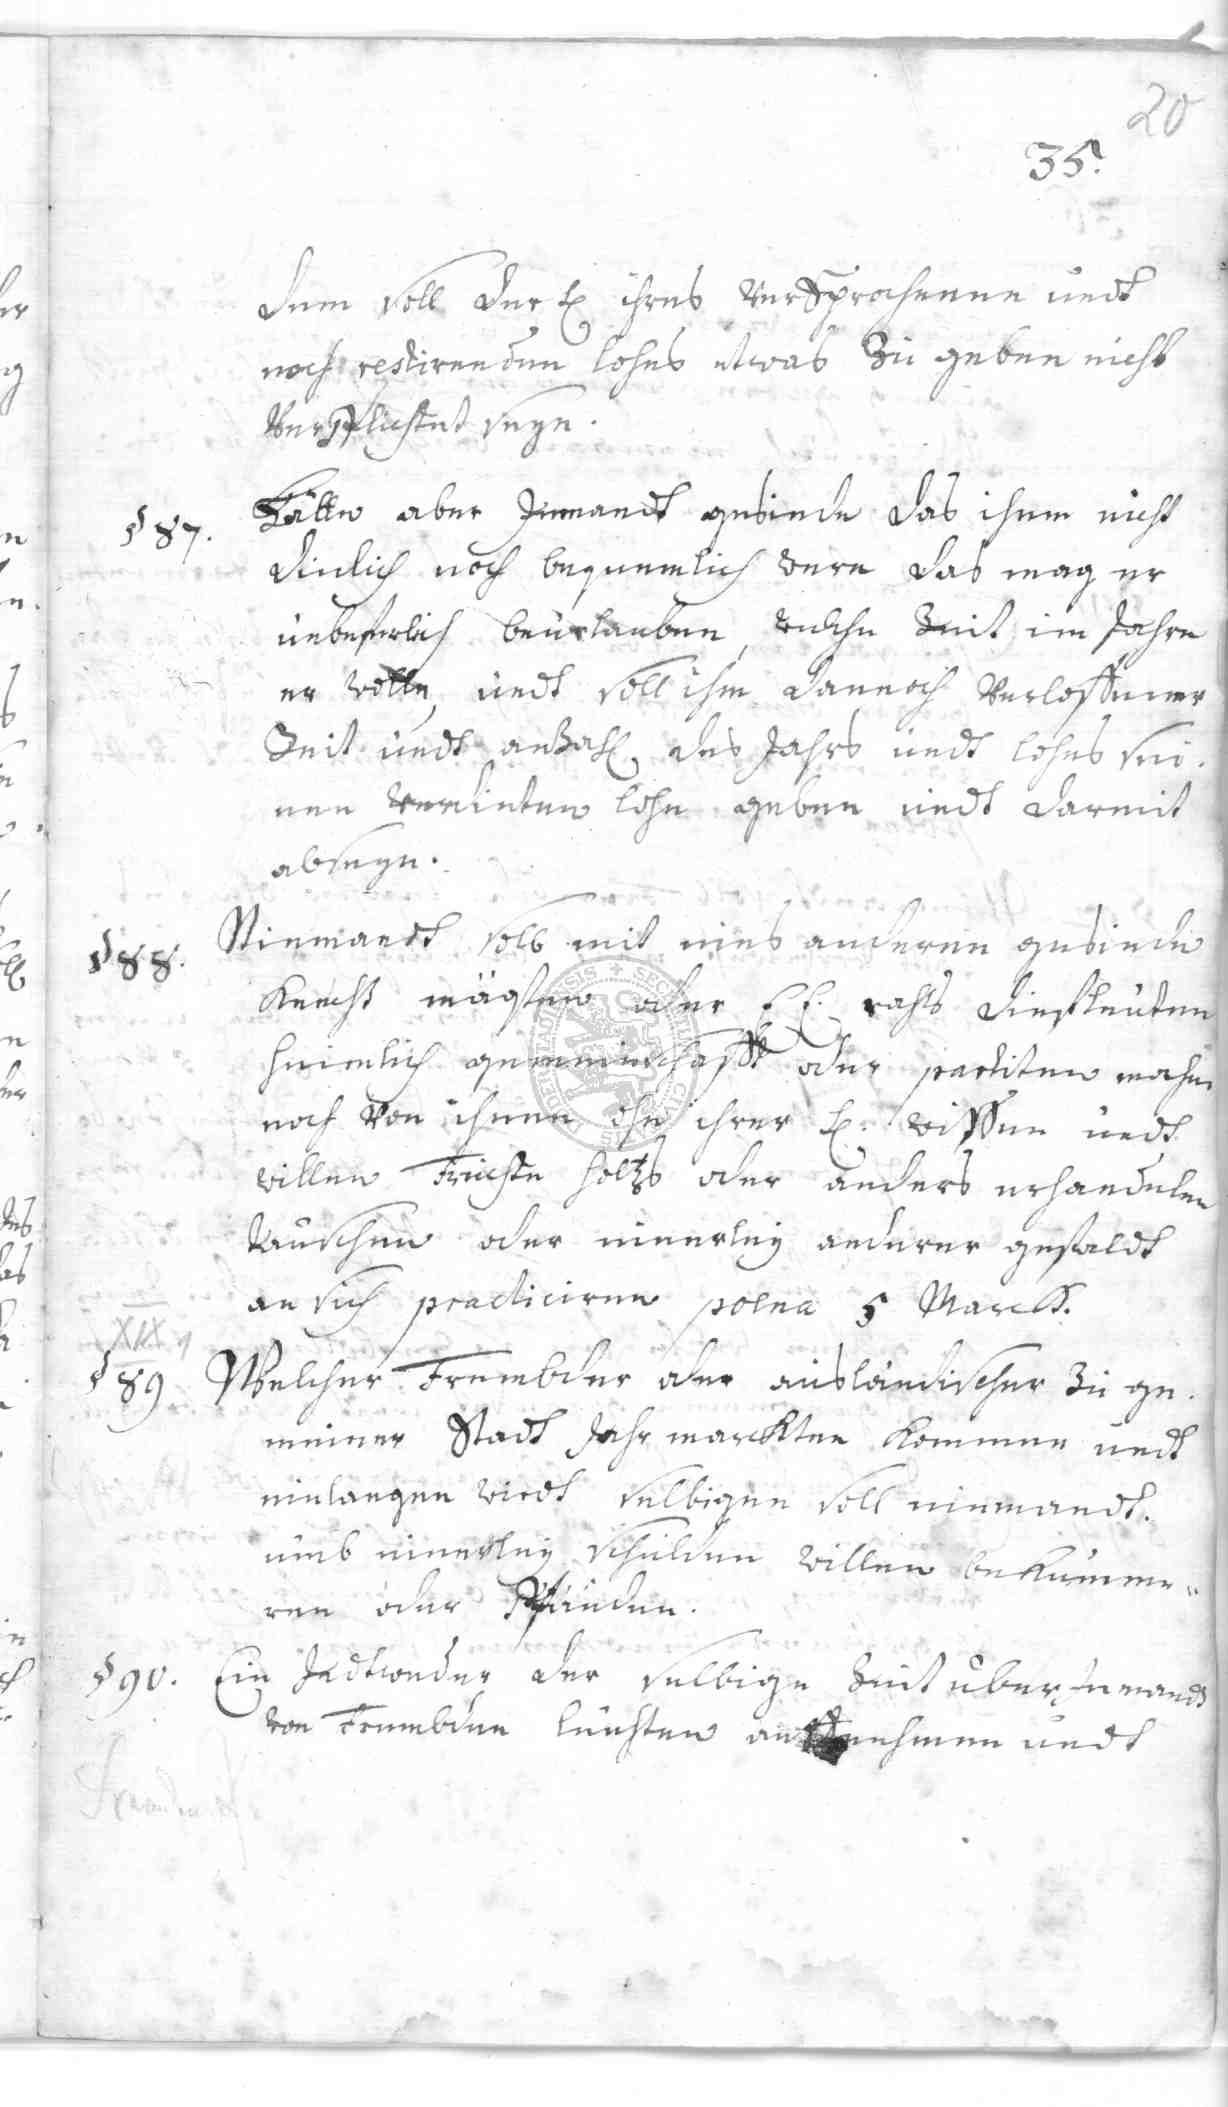 20
35.
dem soll der H. ihres versprochenen undt
noch restirenden lohns etwas zu geben nicht
verpflichtet seyn.
§ 87. Hätte aber Jemandt gesinde das ihme nicht
dinlich noch bequemlich were das mag er
beurlauben, welche Zeit im Jahre
er wolle, undt soll ihm dannoch verloffener
Zeit undt anzahl des Jahrs undt lohns sei-
nen verdinten lohn geben undt darmit
abseyn.
§ 88. Niemandt soll mit eines anderen gesinde
Knecht mägten oder E E. rahts dienstleuten
heimlich gemeinschafft oder partiten machen
noch von ihnen ohn ihrer H. wissen undt
willen früchte holtz oder anders erhandelen
tauschen oder einerley anderer gestaldt
an sich practiciren poena 5 Marck.
XIX
§ 89 Welcher frembder oder ausländischer zu ge-
meiner Stadt Jahrmarckten kommen undt
einlangen wirdt selbigen soll niemandt
umb einerley schulden willen bekümme-
ren oder pfänden.
§ 90. Ein Jedtweder der selbige Zeit uber Jemandt
von frembden leuhten auffnehmen undt